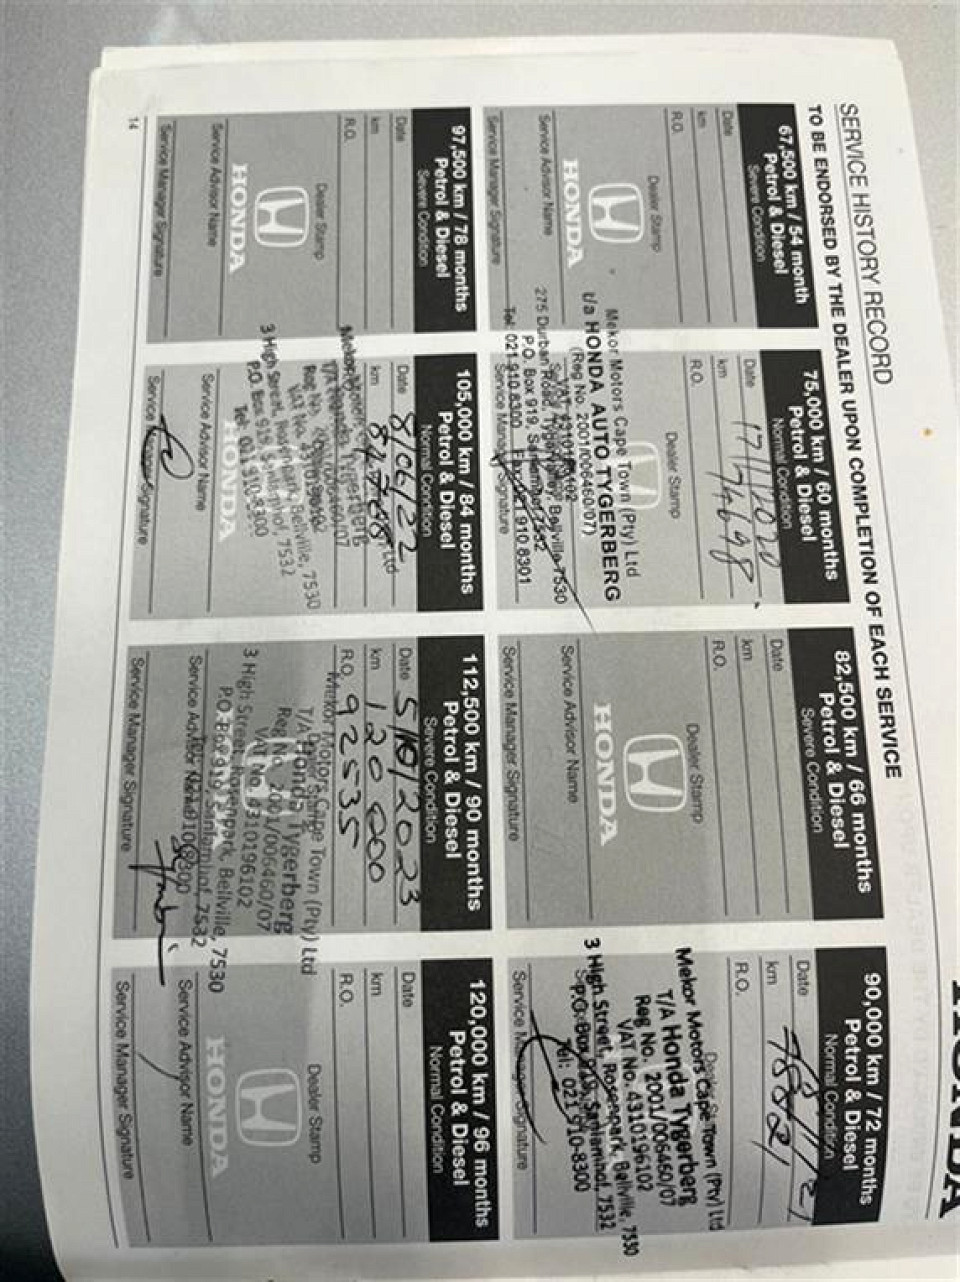 SERVICE HISTORY RECORD
TO BE ENDORSED BY THE DEALER UPON COMPLETION OF EACH SERVICE
67,500 km / 54 month
Petrol & Diesel
Severe Condition
Date
km
R.O.
Dealer Stamp
HONDA
Service Advisor Name
Service Manager Signature
75,000 km / 60 months
Petrol & Diesel
Normal Condition
Date 17/11/2020
km 74698
R.O.
Dealer Stamp
Mekor Motors Cape Town (Pty) Ltd
t/a HONDA AUTO TYGERBERG
(Reg No. 2001/006460/07)
VAT: 4310196102
275 Durban Road, Bellville, 7530
P.O. Box 919, Sanlamhof 7532
Tel: 021 910 8300 Fax: 021 910 8301
Service Manager Signature
82,500 km / 66 months
Petrol & Diesel
Severe Condition
Date
km
R.O.
Dealer Stamp
HONDA
Service Advisor Name
Service Manager Signature
90,000 km / 72 months
Petrol & Diesel
Normal Condition
Date
km 78821
R.O.
Dealer Stamp
Mekor Motors Cape Town (Pty) Ltd
T/A Honda Tygerberg
Reg No. 2001/006460/07
VAT No. 4310196102
3 High Street, Rosenpark, Bellville, 7530
P.O. Box 919, Sanlamhof, 7532
Tel: 021 910-8300
Service Manager Signature
97,500 km / 78 months
Petrol & Diesel
Severe Condition
Date
km
R.O.
Dealer Stamp
HONDA
Service Advisor Name
Service Manager Signature
105,000 km / 84 months
Petrol & Diesel
Normal Condition
Date 8/06/22
km 84768
Mekor Motors Ltd
T/A Honda Tygerberg
Reg No. 2001/006460/07
VAT No. 4310196102
3 High Street, Rosenpark, Bellville, 7530
P.O. Box 919 Sanlamhof, 7532
Tel: 021 910-8300
HONDA
Service Advisor Name
Service Manager Signature
112,500 km / 90 months
Petrol & Diesel
Severe Condition
Date 5/10/2023
km 120 000
R.O. 92535
Dealer Stamp
Mekor Motors Cape Town (Pty) Ltd
T/A Honda Tygerberg
Reg No. 2001/006460/07
VAT No. 4310196102
3 High Street, Rosenpark, Bellville, 7530
P.O. Box 919 Sanlamhof, 7532
Service Advisor Name
Service Manager Signature
120,000 km / 96 months
Petrol & Diesel
Normal Condition
Date
km
R.O.
Dealer Stamp
HONDA
Service Advisor Name
Service Manager Signature
14
HONDA